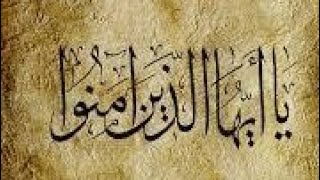 يا أيّها الذّين امنوا